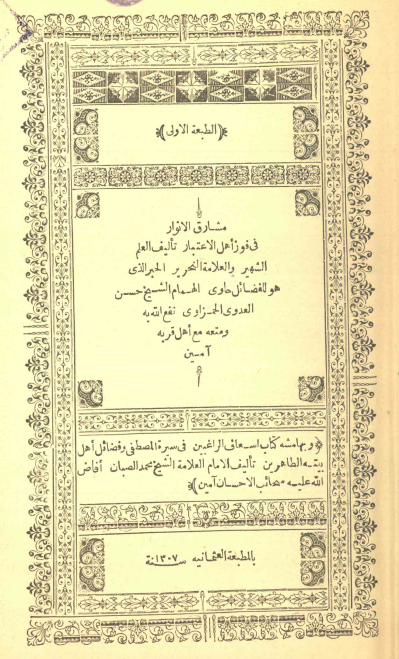 ﴿(الطبعة الاولى)﴾
مشارق الانوار
فى فوز أهل الاعتبار تأليف العلم
الشهير والعلامة النحرير الحبر الذى
هو للفضائل حاوى الهمام الشيخ حسن
العدوى الحمزاوى نفع الله به
ومتعه مع أهل قربه
آمين
﴿وبهامشه كتاب اسعاف الراغبين فى سيرة المصطفى وفضائل أهل
بيته الطاهرين تأليف الامام العلامة الشيخ محمد الصبان أفاض
الله عليه سحائب الاحسان آمين﴾
بالمطبعة العثمانيه سنة ١٣٠٧